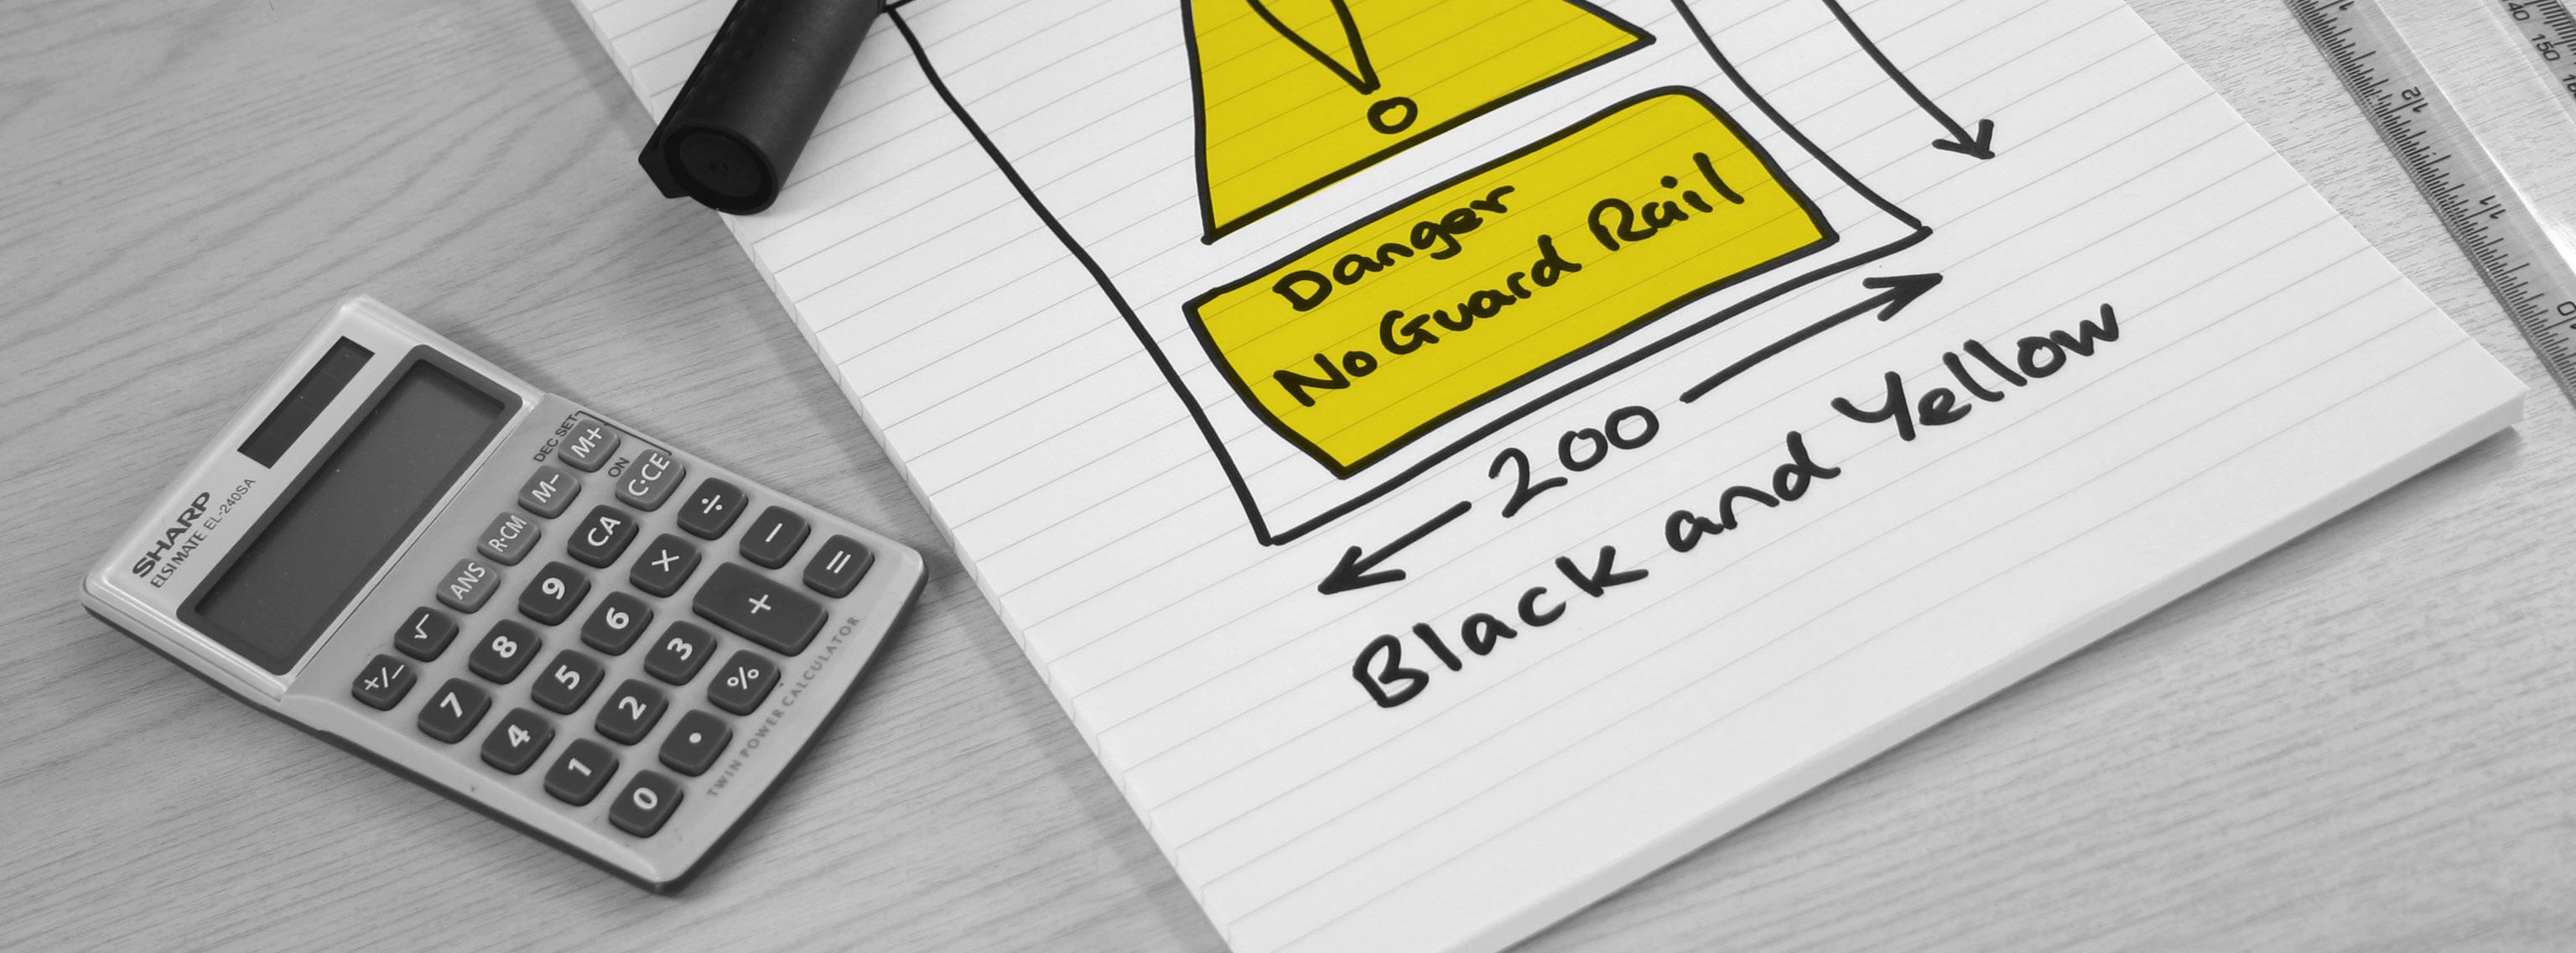 Danger
No Guard Rail
200
Black and Yellow
SHARP
ELSIMATE EL-240SA
DEC SET
M+
ON
M-
C·CE
R·CM
CA
÷
ANS
9
×
−
=
√
8
6
+
+/−
7
5
3
4
2
%
1
•
0
TWIN POWER CALCULATOR
12
11
0
40
150